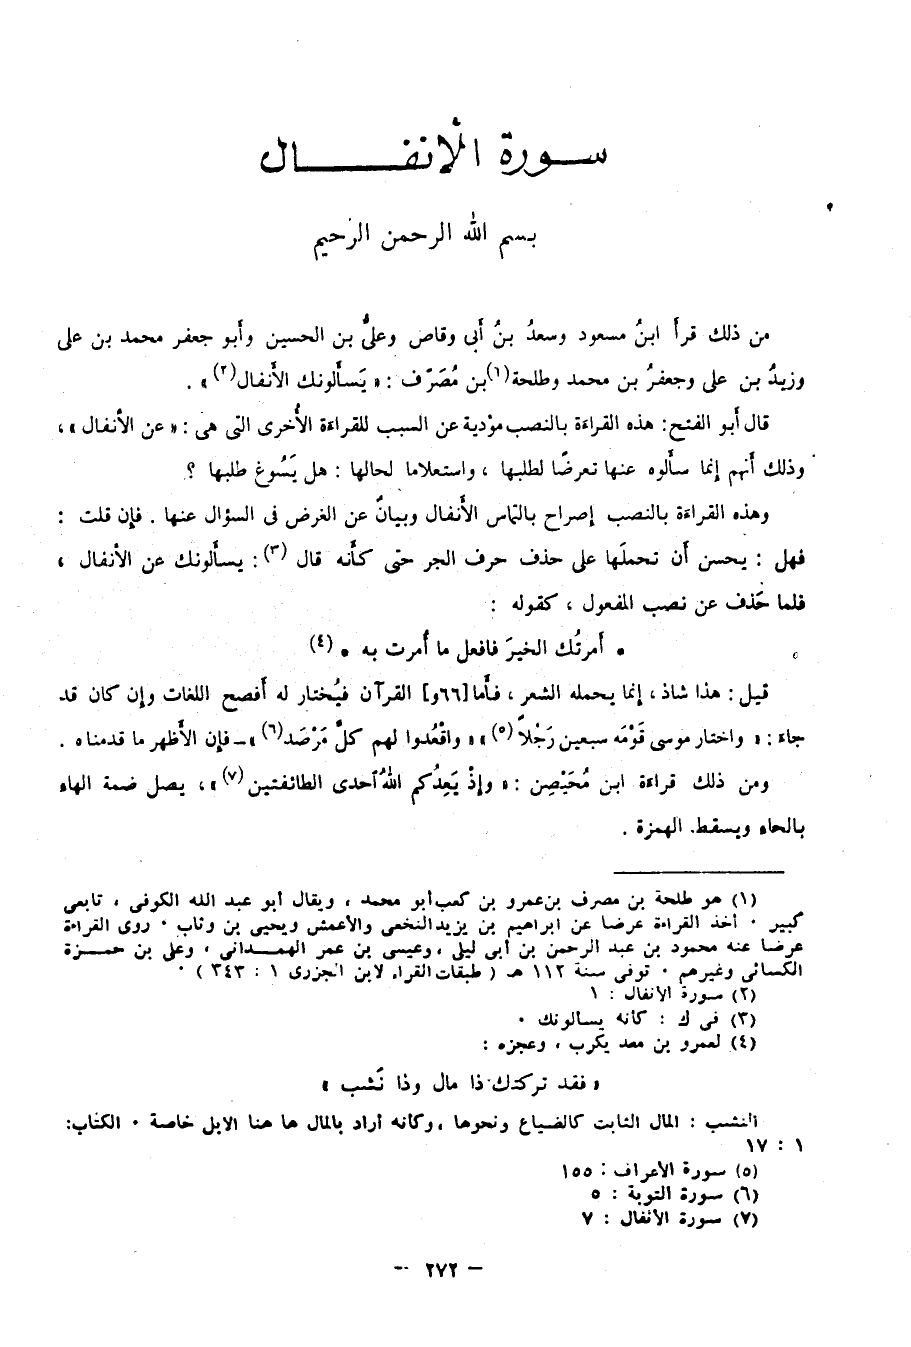 سورة الأنفال
بسم الله الرحمن الرحيم
من ذلك قرأ ابنُ مسعود وسعدُ بنُ أبي وقاص وعليُّ بن الحسين وأبو جعفر محمد بن على
وزيدُ بن على وجعفرُ بن محمد وطلحة(١) بن مُصَرِّف : « يَسألونك الأنفال(٢) » .
قال أبو الفتح: هذه القراءة بالنصب مؤدية عن السبب للقراءة الأخرى التى هى : « عن الأنفال » ،
وذلك أنهم إنما سألوه عنها تعرضًا لطلبها ، واستعلاما لحالها : هل يَسُوغ طلبها ؟
وهذه القراءة بالنصب إصراح بالتماس الأنفال وبيانٌ عن الغرض فى السؤال عنها . فإن قلت :
فهل : يحسن أن تحملَها على حذف حرف الجر حتى كأنه قال (٣) : يسألونك عن الأنفال ،
فلما حُذف عن نصب المفعول ، كقوله :
• أمرتُك الخيرَ فافعل ما أُمرت به • (٤)
قيل : هذا شاذ ، إنما يحمله الشعر ، فأما [٦٦و] القرآن فيُختار له أفصح اللغات وإن كان قد
جاء : « واختار موسى قَوْمَه سبعين رَجُلاً(٥) » « واقْعُدوا لهم كلَّ مَرْصَد(٦) » – فإن الأظهر ما قدمناه .
ومن ذلك قراءة ابن مُحَيْصِن : « وإذْ يَعِدُكم اللهُ احدى الطائفتين (٧) » ، يصل ضمة الهاء
بالحاء ويسقط الهمزة .
(١) هو طلحة بن مصرف بن عمرو بن كعب أبو محمد ، ويقال أبو عبد الله الكوفى ، تابعى
كبير . أخذ القراءة عرضا عن ابراهيم بن يزيد النخعى والأعمش ويحيى بن وثاب . روى القراءة
عرضا عنه محمود بن عبد الرحمن بن أبى ليلى ، وعيسى بن عمر الهمدانى ، وعلى بن حمزة
الكسائى وغيرهم . توفى سنة ١١٢ هـ ( طبقات القراء لابن الجزرى ١ : ٣٤٣ ) .
(٢) سورة الأنفال : ١
(٣) فى ك : كأنه يسألونك .
(٤) لعمرو بن معد يكرب ، وعجزه :
« فقد تركتك ذا مال وذا نَشب »
النشب : المال الثابت كالضياع ونحوها ، وكأنه أراد بالمال ها هنا الابل خاصة . الكتاب:
١ : ١٧
(٥) سورة الأعراف : ١٥٥
(٦) سورة التوبة : ٥
(٧) سورة الأنفال : ٧
– ٢٧٢ –